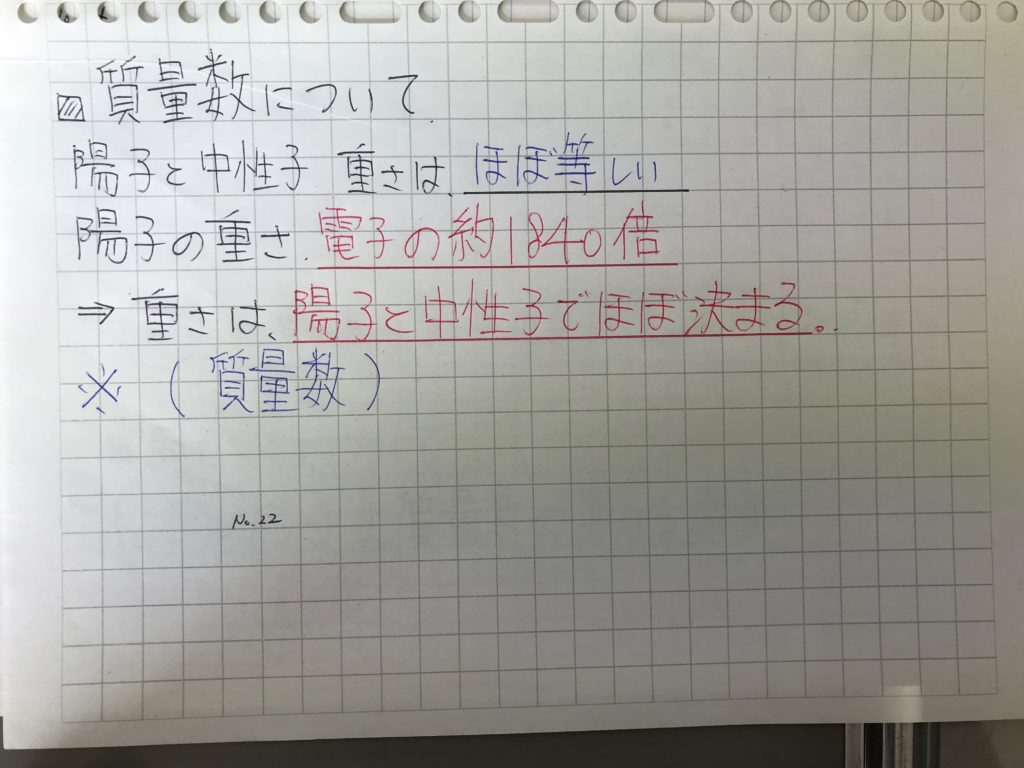 ▨ 質量数について
陽子と中性子 重さは、ほぼ等しい
陽子の重さ、電子の約1840倍
⇒ 重さは、陽子と中性子でほぼ決まる。
※ (質量数)
No.22